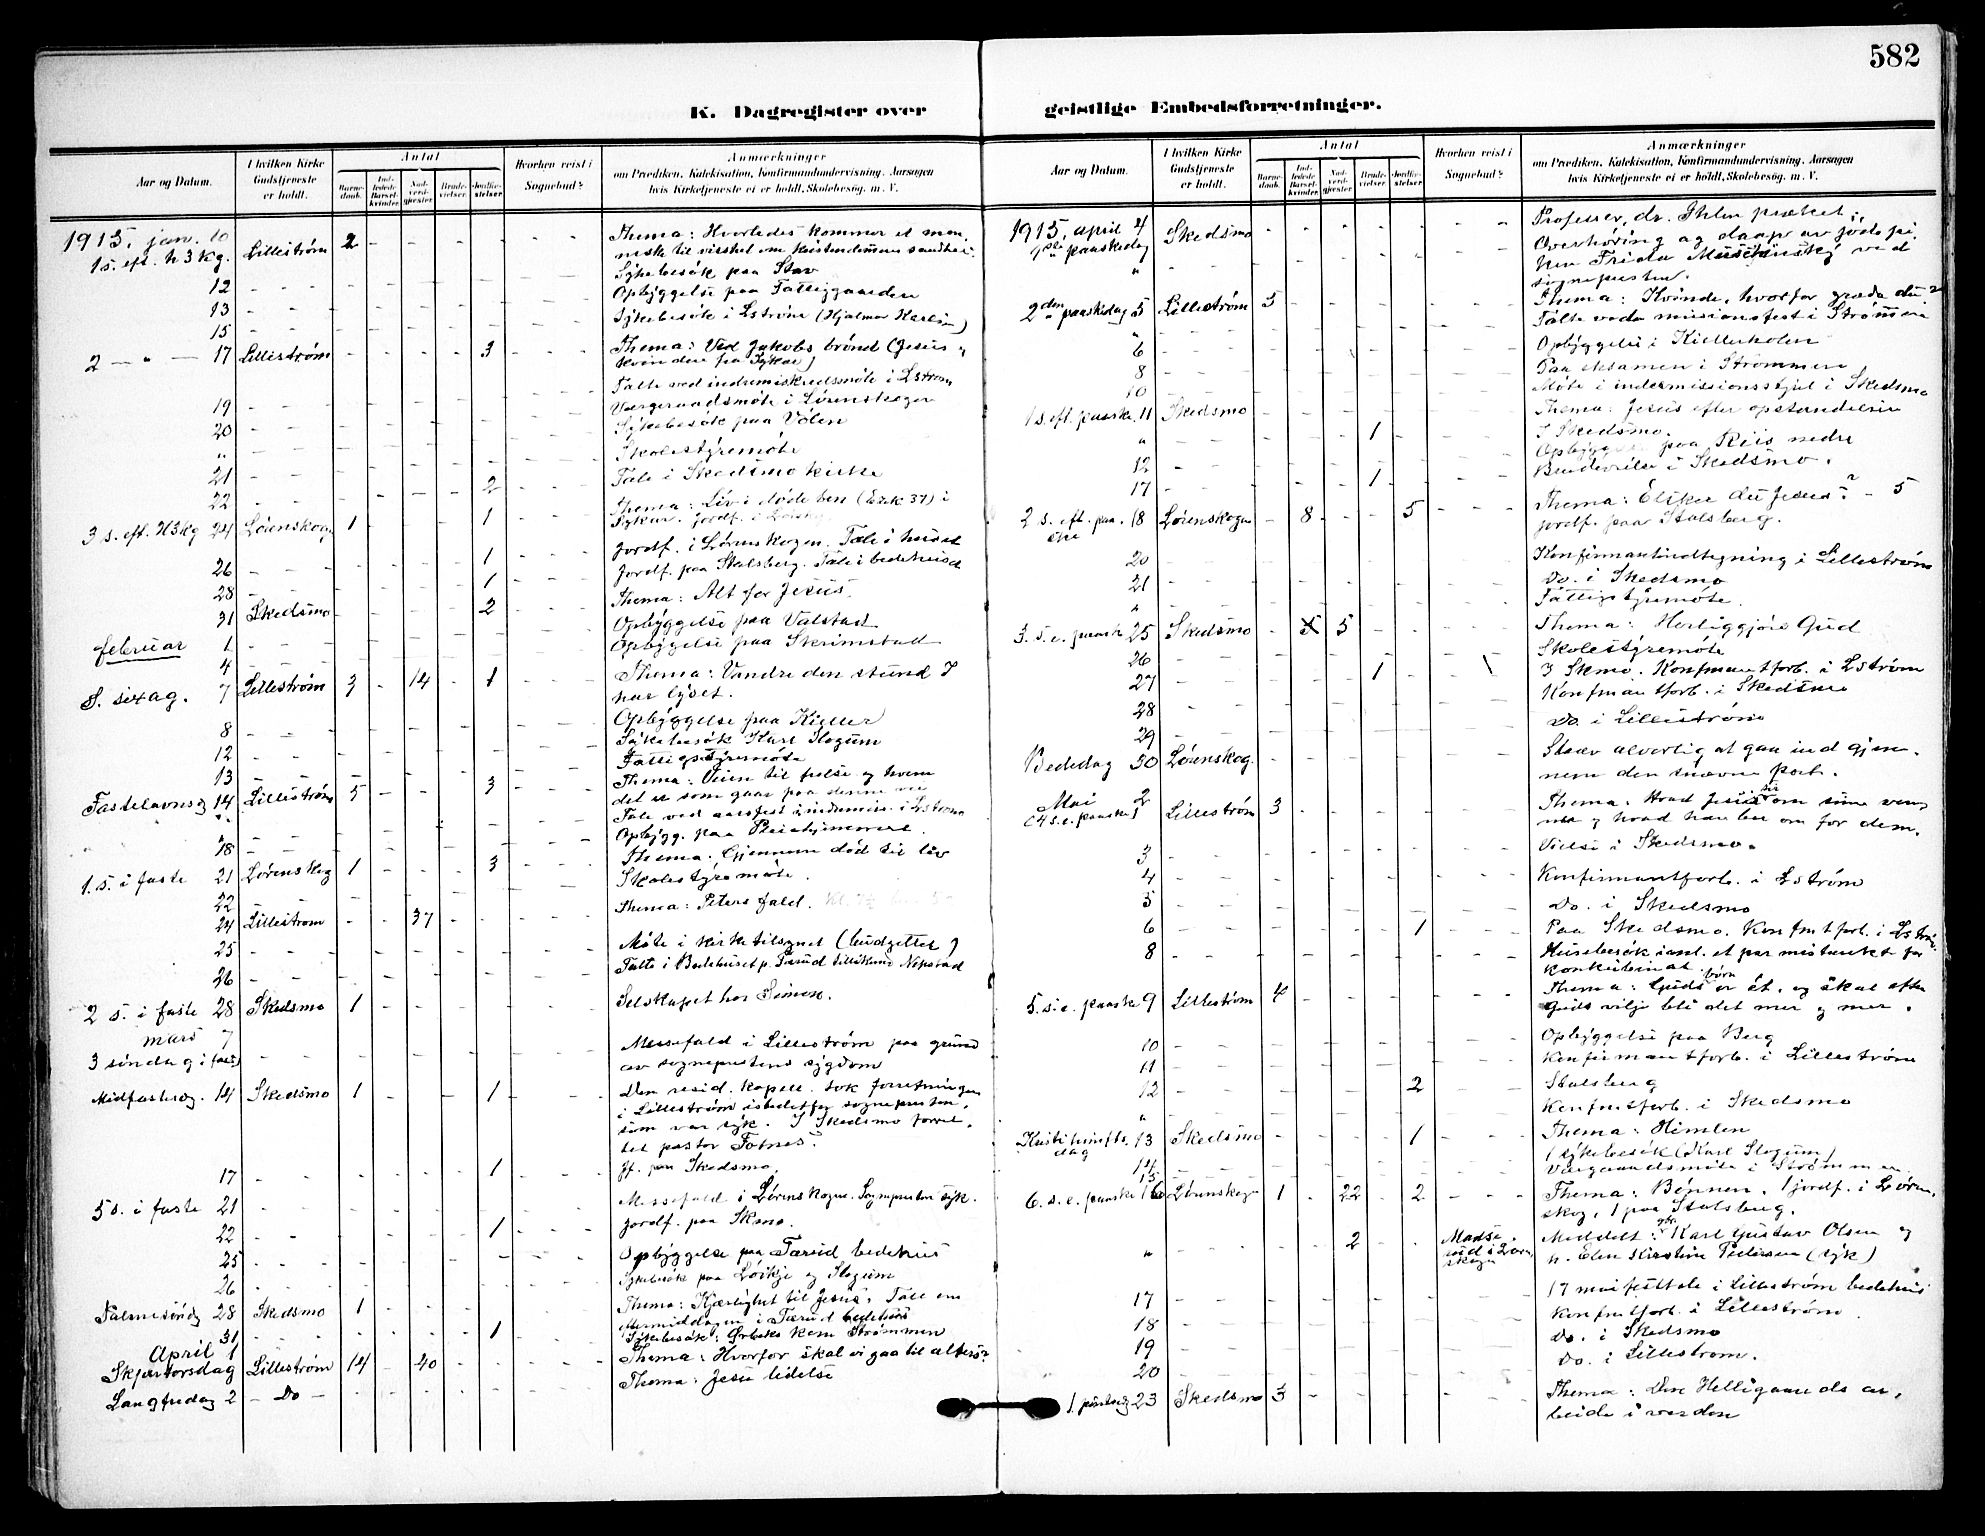 582
K. Dagregister over
geistlige Embedsforretninger.
Aar og Datum.
I hvilken Kirke Gudstjeneste er holdt.
Antal
Barne-daab.
Ind-ledede Barsel-kvinder.
Nad-verds-gjæster.
Brude-vielser.
Jordfæ-stelser
Hvorhen reist i Sognebud?
Anmærkninger
om Prædiken, Katekisation, Konfirmandundervisning, Aarsagen
hvis Kirketjeneste ei er holdt, Skolebesøg, m. V.
1915. jan. 10
1 s. eft. h 3 kg. Lillestrøm 2 Thema: Hvorledes kommer et men
neske til vished om kristendommens sandhet.
12 Sykebesök paa Stav
13 Opbyggelse paa Fattiggaarden
15 Sykebesök i Lström (Hjalmar Karlsen)
2 — " — 17 Lillestrøm 3 Thema: Ved Jakobs brönd (Jesus og
kvinden fra Sykar)
Talte ved indremiskredsmöte i Lström
19 Værgeraadsmöte i Lörenskogen
20 Sykebesök paa Volen
" Skolestyremöte
21 Tale i Skedsmo kirke
22 2
Thema: Liv i döde ben (Esek 37) i
3 s. eft. H3kg 24 Lörenskogen 1 1
Jordf. i Lörenskogen. Tale i huset
26 1 Jordf. paa Stalsberg. Tale i bedehuset
28 1
31 Skedsmo 2 Thema: Alt for Jesus.
februar 1 Opbyggelse paa Valstad
4 Opbyggelse paa Skrimstad
S. sexag. 7 Lillestrøm 3 14 1 Thema: Vandre den stund I
har lyset.
8 Opbyggelse paa Kjeller
12 Sykebesök Karl Slogum
13 Fattigstyremöte
Fastelavnsg 14 Lillestrøm 5 3 Thema: Veien til frelse og hvem
det er som gaar paa denne vei
" Tale ved aarsfest i indremiss. i Lström
18 Opbygg. paa
1. s. i faste 21 Lörenskog 1 3 Thema: Gjennem död til liv
22 Skolestyremöte.
24 Lillestrom 37 Thema: Peters fald.
25 Möte i kirketilsynet (budgettet)
26 Talte i Bedehuset p. Tærud
2 s. i faste 28 Skedsmo 1 Selskapet hos Simon.
mars 7
3 söndag i faste Messefald i Lilleström paa grund
av sogneprestens sygdom
Midfastesög. 14 Skedsmo 1 1 Den resid. kapell. tok forretningen
i Lilleström istedetfor sognepresten,
som var syk. I Skedsmo forret-
tet pastor Fotnes.
17 1 Jf. paa Skedsmo.
5 s. i faste 21 Messefald i Lörenskogen. Sognepresten syk.
22 1 Jordf. paa Skmo.
25 Opbyggelse paa Tærud bedehus
26 Sykebesök paa og Slogum
Palmesöndg 28 Skedsmo 1 Thema: Kjærlighet til Jesus. Tale om
i Tærud bedehus
31 1 Sykebesök: Strömmen
April 1
Skjærtorsdag Lillestrøm 14 40 Thema: Hvorfor skal vi gaa til alters?
Langfredag 2 — Do — Thema: Jesu lidelse
Aar og Datum.
I hvilken Kirke Gudstjeneste er holdt.
Antal
Barne-daab.
Ind-ledede Barsel-kvinder.
Nad-verds-gjæster.
Brude-vielser.
Jordfæ-stelser
Hvorhen reist i Sognebud?
Anmærkninger
om Prædiken, Katekisation, Konfirmandundervisning, Aarsagen
hvis Kirketjeneste ei er holdt, Skolebesøg, m. V.
1915. april 4 Skedsmo Professor, dr. Ihlen præket.
1ste paaskedag
" Overhöring og daap av jödepi
ken Frida ved
sognepresten.
2den paaskedag 5 Lillestrøm 3 Thema: Kvinde, hvorfor græder du?
" Talte ved missionsfest i Strömmen
6 Opbyggelse i
8 Paa eksamen i Strömmen
10 Möte i indermissionsstyret i Skedsmo
1 s. eft. paaske 11 Skedsmo Thema: Jesus efter opstandelsen
" 1 I Skedsmo.
12 Opbyggelse paa Riis nedre
17 1 Brudevielse i Skedsmo.
2 s. eft. paa- 18 Lörenskogen 8 5 Thema: Elsker du Jesus? - 5
ske jordf. paa Stalsberg.
20 Konfirmantindtegning i Lilleström
21 Do. i Skedsmo
" Fattigstyremöte.
3. s. e. paaske 25 Skedsmo 5 5 Thema: Herliggjöre Gud
26 Skolestyremöte
27 1 \ I Skmo. Konfmantforb. i Lström
28 Konfmantforb. i Skedsmo
29 Do. i Lilleström
Bededag 30 Lörenskog Stræv alvorlig at gaa ind gjen-
nem den snævre port.
Mai 2
(4 s. e. paaske) Lilleström 3 Thema: Hvad Jesus ber om for sine ven-
ner og hvad han ber om for dem.
3 Vielse i Skedsmo.
4 Konfirmantforb. i Lström
5 Do. i Skedsmo
6 1 Paa Skedsmo. Konfmtforb. i Lström
8 Husbesök et par mistænkt for
konkubinat.
5. s. e. paaske 9 Lilleström 4 Thema: Guds börn er ét, og skal efter
Guds vilje bli det mer og mer.
10 Opbyggelse paa Berg
11 Konfirmantforb. i Lilleström
12 2 Stalsberg
" Konfmtforb. i Skedsmo
Kristihimlfts. 13 Skedsmo 1 Thema: Himlen
dag
14 1 sykebesök (Karl Slogum)
15 Værgeraadsmöte i Strömmen
6. s. e. paaske 16 Lörenskogen 1 22 2 Thema: Bönnen. 1 jordf. i Lören-
skog, 1 paa Stalsberg.
" 2 Meddelt gbr. Karl Gustav Olsen og
h. Elen Kirstine Pedersen (syk)
17 17 mai festtale i Lilleström bedehus
18 Konfmtforb. i Lilleström
19 Do. i Skedsmo
20 Do. i Lilleström.
1. pinsedg 23 Skedsmo 3 Thema: Den Helligaands ar-
beide i verden